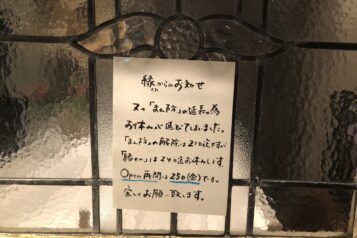 縁からのお知せ
又々「まん防」の延長の為
お休みが延びてしまいました。
「まん防」の解除は21日迄ですが
「縁」は24日迄お休みします。
Open 再開は25日(金)です。
宜しくお願い致します。